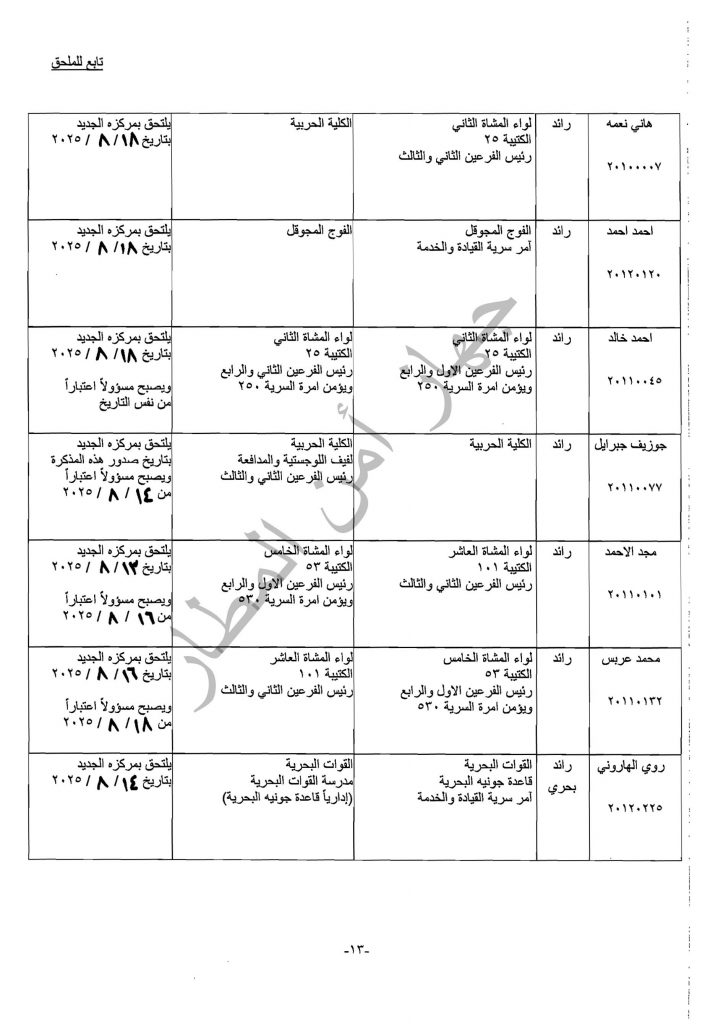 تابع للملحق
هاني نعمه
٢٠١٠٠٠٠٧
رائد
لواء المشاة الثاني
الكتيبة ٢٥
رئيس الفرعين الثاني والثالث
الكلية الحربية
يلتحق بمركزه الجديد
بتاريخ ١٨/ ٨ / ٢٠٢٥
احمد احمد
٢٠١٢٠١٢٠
رائد
الفوج المجوقل
آمر سرية القيادة والخدمة
الفوج المجوقل
يلتحق بمركزه الجديد
بتاريخ ١٨/ ٨ / ٢٠٢٥
احمد خالد
٢٠١١٠٠٤٥
رائد
لواء المشاة الثاني
الكتيبة ٢٥
رئيس الفرعين الاول والرابع
ويؤمن امرة السرية ٢٥٠
لواء المشاة الثاني
الكتيبة ٢٥
رئيس الفرعين الثاني والرابع
ويؤمن امرة السرية ٢٥٠
يلتحق بمركزه الجديد
بتاريخ ١٨/ ٨ / ٢٠٢٥
ويصبح مسؤولاً اعتباراً
من نفس التاريخ
جوزيف جبرايل
٢٠١١٠٠٧٧
رائد
الكلية الحربية
الكلية الحربية
لفيف اللوجستية والمدافعة
رئيس الفرعين الثاني والثالث
يلتحق بمركزه الجديد
بتاريخ صدور هذه المذكرة
ويصبح مسؤولاً اعتباراً
من ١٤/ ٨ / ٢٠٢٥
مجد الاحمد
٢٠١١٠١٠١
رائد
لواء المشاة العاشر
الكتيبة ١٠١
رئيس الفرعين الثاني والثالث
لواء المشاة الخامس
الكتيبة ٥٣
رئيس الفرعين الاول والرابع
ويؤمن امرة السرية ٥٣٠
يلتحق بمركزه الجديد
بتاريخ ١٣/ ٨ / ٢٠٢٥
ويصبح مسؤولاً اعتباراً
من ١٦/ ٨ / ٢٠٢٥
محمد عربس
٢٠١١٠١٣٢
رائد
لواء المشاة الخامس
الكتيبة ٥٣
رئيس الفرعين الاول والرابع
ويؤمن امرة السرية ٥٣٠
لواء المشاة العاشر
الكتيبة ١٠١
رئيس الفرعين الثاني والثالث
يلتحق بمركزه الجديد
بتاريخ ١٦/ ٨ / ٢٠٢٥
ويصبح مسؤولاً اعتباراً
من ١٨/ ٨ / ٢٠٢٥
روي الهاروني
٢٠١٢٠٢٢٥
رائد
بحري
القوات البحرية
قاعدة جونيه البحرية
آمر سرية القيادة والخدمة
القوات البحرية
مدرسة القوات البحرية
(إدارياً قاعدة جونيه البحرية)
يلتحق بمركزه الجديد
بتاريخ ١٤/ ٨ / ٢٠٢٥
جهاز أمن المطار
-١٣-